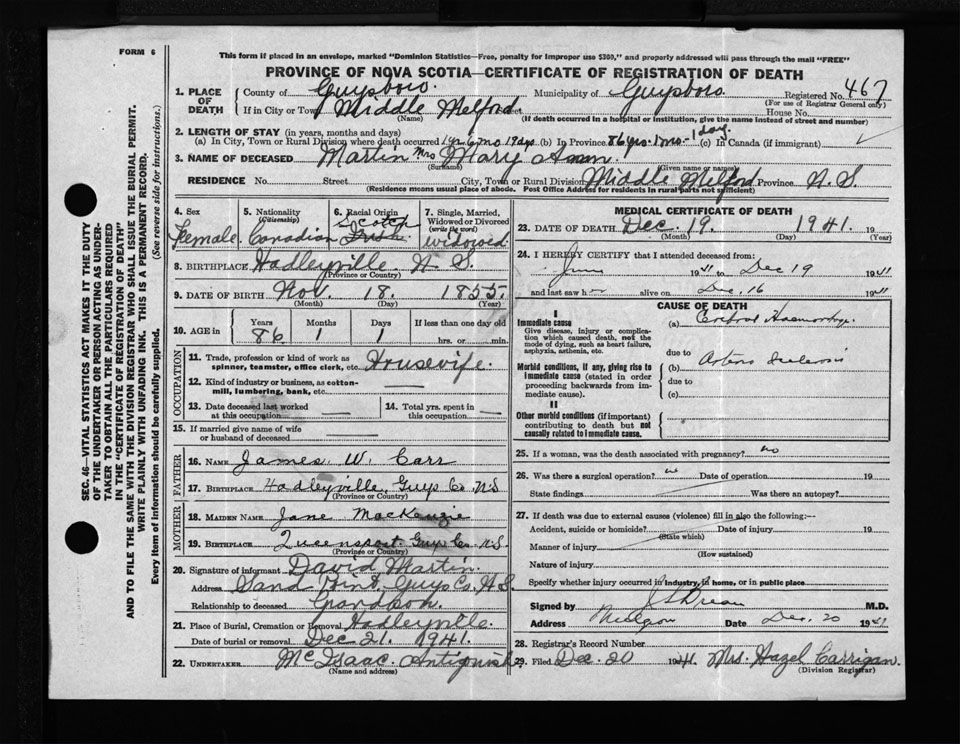 FORM 6
This form if placed in an envelope, marked "Dominion Statistics—Free, penalty for improper use $300," and properly addressed will pass through the mail "FREE"
PROVINCE OF NOVA SCOTIA—CERTIFICATE OF REGISTRATION OF DEATH
1. PLACE OF DEATH
County of Guysboro. Municipality of Guysboro Registered No. 467
(For use of Registrar General only)
If in City or Town Middle Melford House No.
(Name) (If death occurred in a hospital or institution, give the name instead of street and number)
2. LENGTH OF STAY (in years, months and days)
(a) In City, Town or Rural Division where death occurred 1 yr 6 mo 19 dys (b) In Province 86 yrs. 1 mo. 1 day. (c) In Canada (if immigrant)
3. NAME OF DECEASED Martin Mrs Mary Ann.
(Surname) (Given name or names)
RESIDENCE No. Street City, Town or Rural Division Middle Melford Province N. S.
(Residence means usual place of abode. Post Office Address for residents in rural parts not sufficient)
4. Sex Female
5. Nationality (Citizenship) Canadian
6. Racial Origin Scotch
7. Single, Married, Widowed or Divorced (write the word) widowed
8. BIRTHPLACE Hadleyville. N. S.
(Province or Country)
9. DATE OF BIRTH Nov. 18. 1855.
(Month) (Day) (Year)
10. AGE in Years 86 Months 1 Days 1 If less than one day old hrs. or min.
OCCUPATION
11. Trade, profession or kind of work as spinner, teamster, office clerk, etc. Housewife.
12. Kind of industry or business, as cotton-mill, lumbering, bank, etc.
13. Date deceased last worked at this occupation
14. Total yrs. spent in this occupation
15. If married give name of wife or husband of deceased
FATHER
16. NAME James. W. Carr
17. BIRTHPLACE Hadleyville, Guys Co. N S
(Province or Country)
MOTHER
18. MAIDEN NAME Jane MacKenzie
19. BIRTHPLACE Queensport Guys Co N S
(Province or Country)
20. Signature of informant David Martin.
Address Sand Point, Guys Co. N. S.
Relationship to deceased Grandson.
21. Place of Burial, Cremation or Removal Hadleyville.
Date of burial or removal Dec 21. 1941.
22. UNDERTAKER McIsaac. Antigonish.
(Name and address)
MEDICAL CERTIFICATE OF DEATH
23. DATE OF DEATH Dec. 19. 1941. 19
(Month) (Day) (Year)
24. I HEREBY CERTIFY that I attended deceased from:
June 1941 to Dec 19 1941
and last saw h alive on Dec. 16 1941
CAUSE OF DEATH
I
Immediate cause
Give disease, injury or complication which caused death, not the mode of dying, such as heart failure, asphyxia, asthenia, etc.
(a)
due to
Morbid conditions, if any, giving rise to immediate cause (stated in order proceeding backwards from immediate cause).
(b)
due to
(c)
II
Other morbid conditions (if important) contributing to death but not causally related to immediate cause.
25. If a woman, was the death associated with pregnancy? no
26. Was there a surgical operation? no Date of operation 19
State findings Was there an autopsy?
27. If death was due to external causes (violence) fill in also the following:—
Accident, suicide or homicide? Date of injury 19
(State which)
Manner of injury
(How sustained)
Nature of injury
Specify whether injury occurred in industry, in home, or in public place
Signed by M.D.
Address Date Dec. 20 1941
28. Registrar's Record Number
29. Filed Dec. 20 1941. Mrs. Hazel Carrigan.
(Division Registrar)
SEC. 46—VITAL STATISTICS ACT MAKES IT THE DUTY OF THE UNDERTAKER OR PERSON ACTING AS UNDERTAKER TO OBTAIN ALL THE PARTICULARS REQUIRED IN THE "CERTIFICATE OF REGISTRATION OF DEATH"
AND TO FILE THE SAME WITH THE DIVISION REGISTRAR WHO SHALL ISSUE THE BURIAL PERMIT.
WRITE PLAINLY WITH UNFADING INK. THIS IS A PERMANENT RECORD.
Every item of information should be carefully supplied. (See reverse side for instructions.)